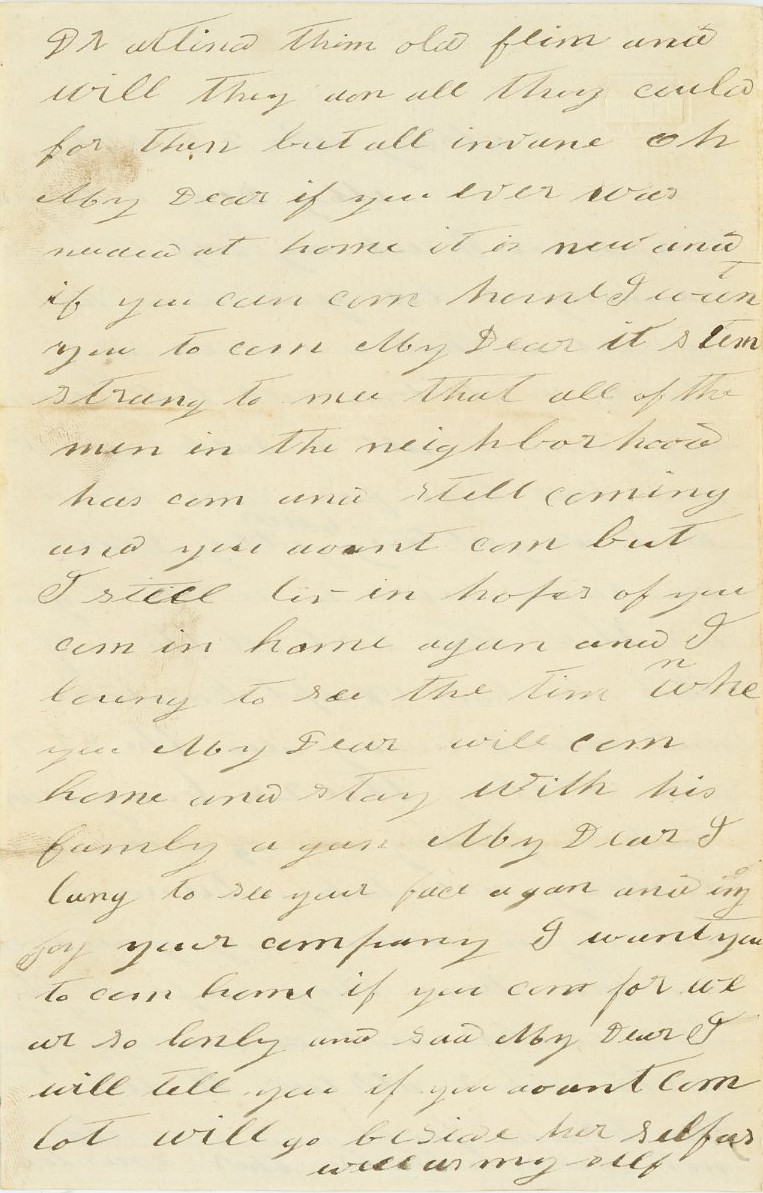 Dr attind them old flim and
will they don all they could
for them but all invane oh
My Dear if you ever was
needed at home it is now and
if you can com home I wan
you to com My Dear it s tem
strang to mee that all of the
men in the neighborhood
has com and still coming
and you dount com but
I still liv in hopes of you
com in home agan and I
loung to see the tim when
you My Dear will com
home and stay With his
family agan My Dear I
lung to see your face agan and inj
joy your company I want you
to com home if you can for we
ar so lonly and sad My Dear I
will tell you if you dount Com
lot will go beside her self as
well as my self